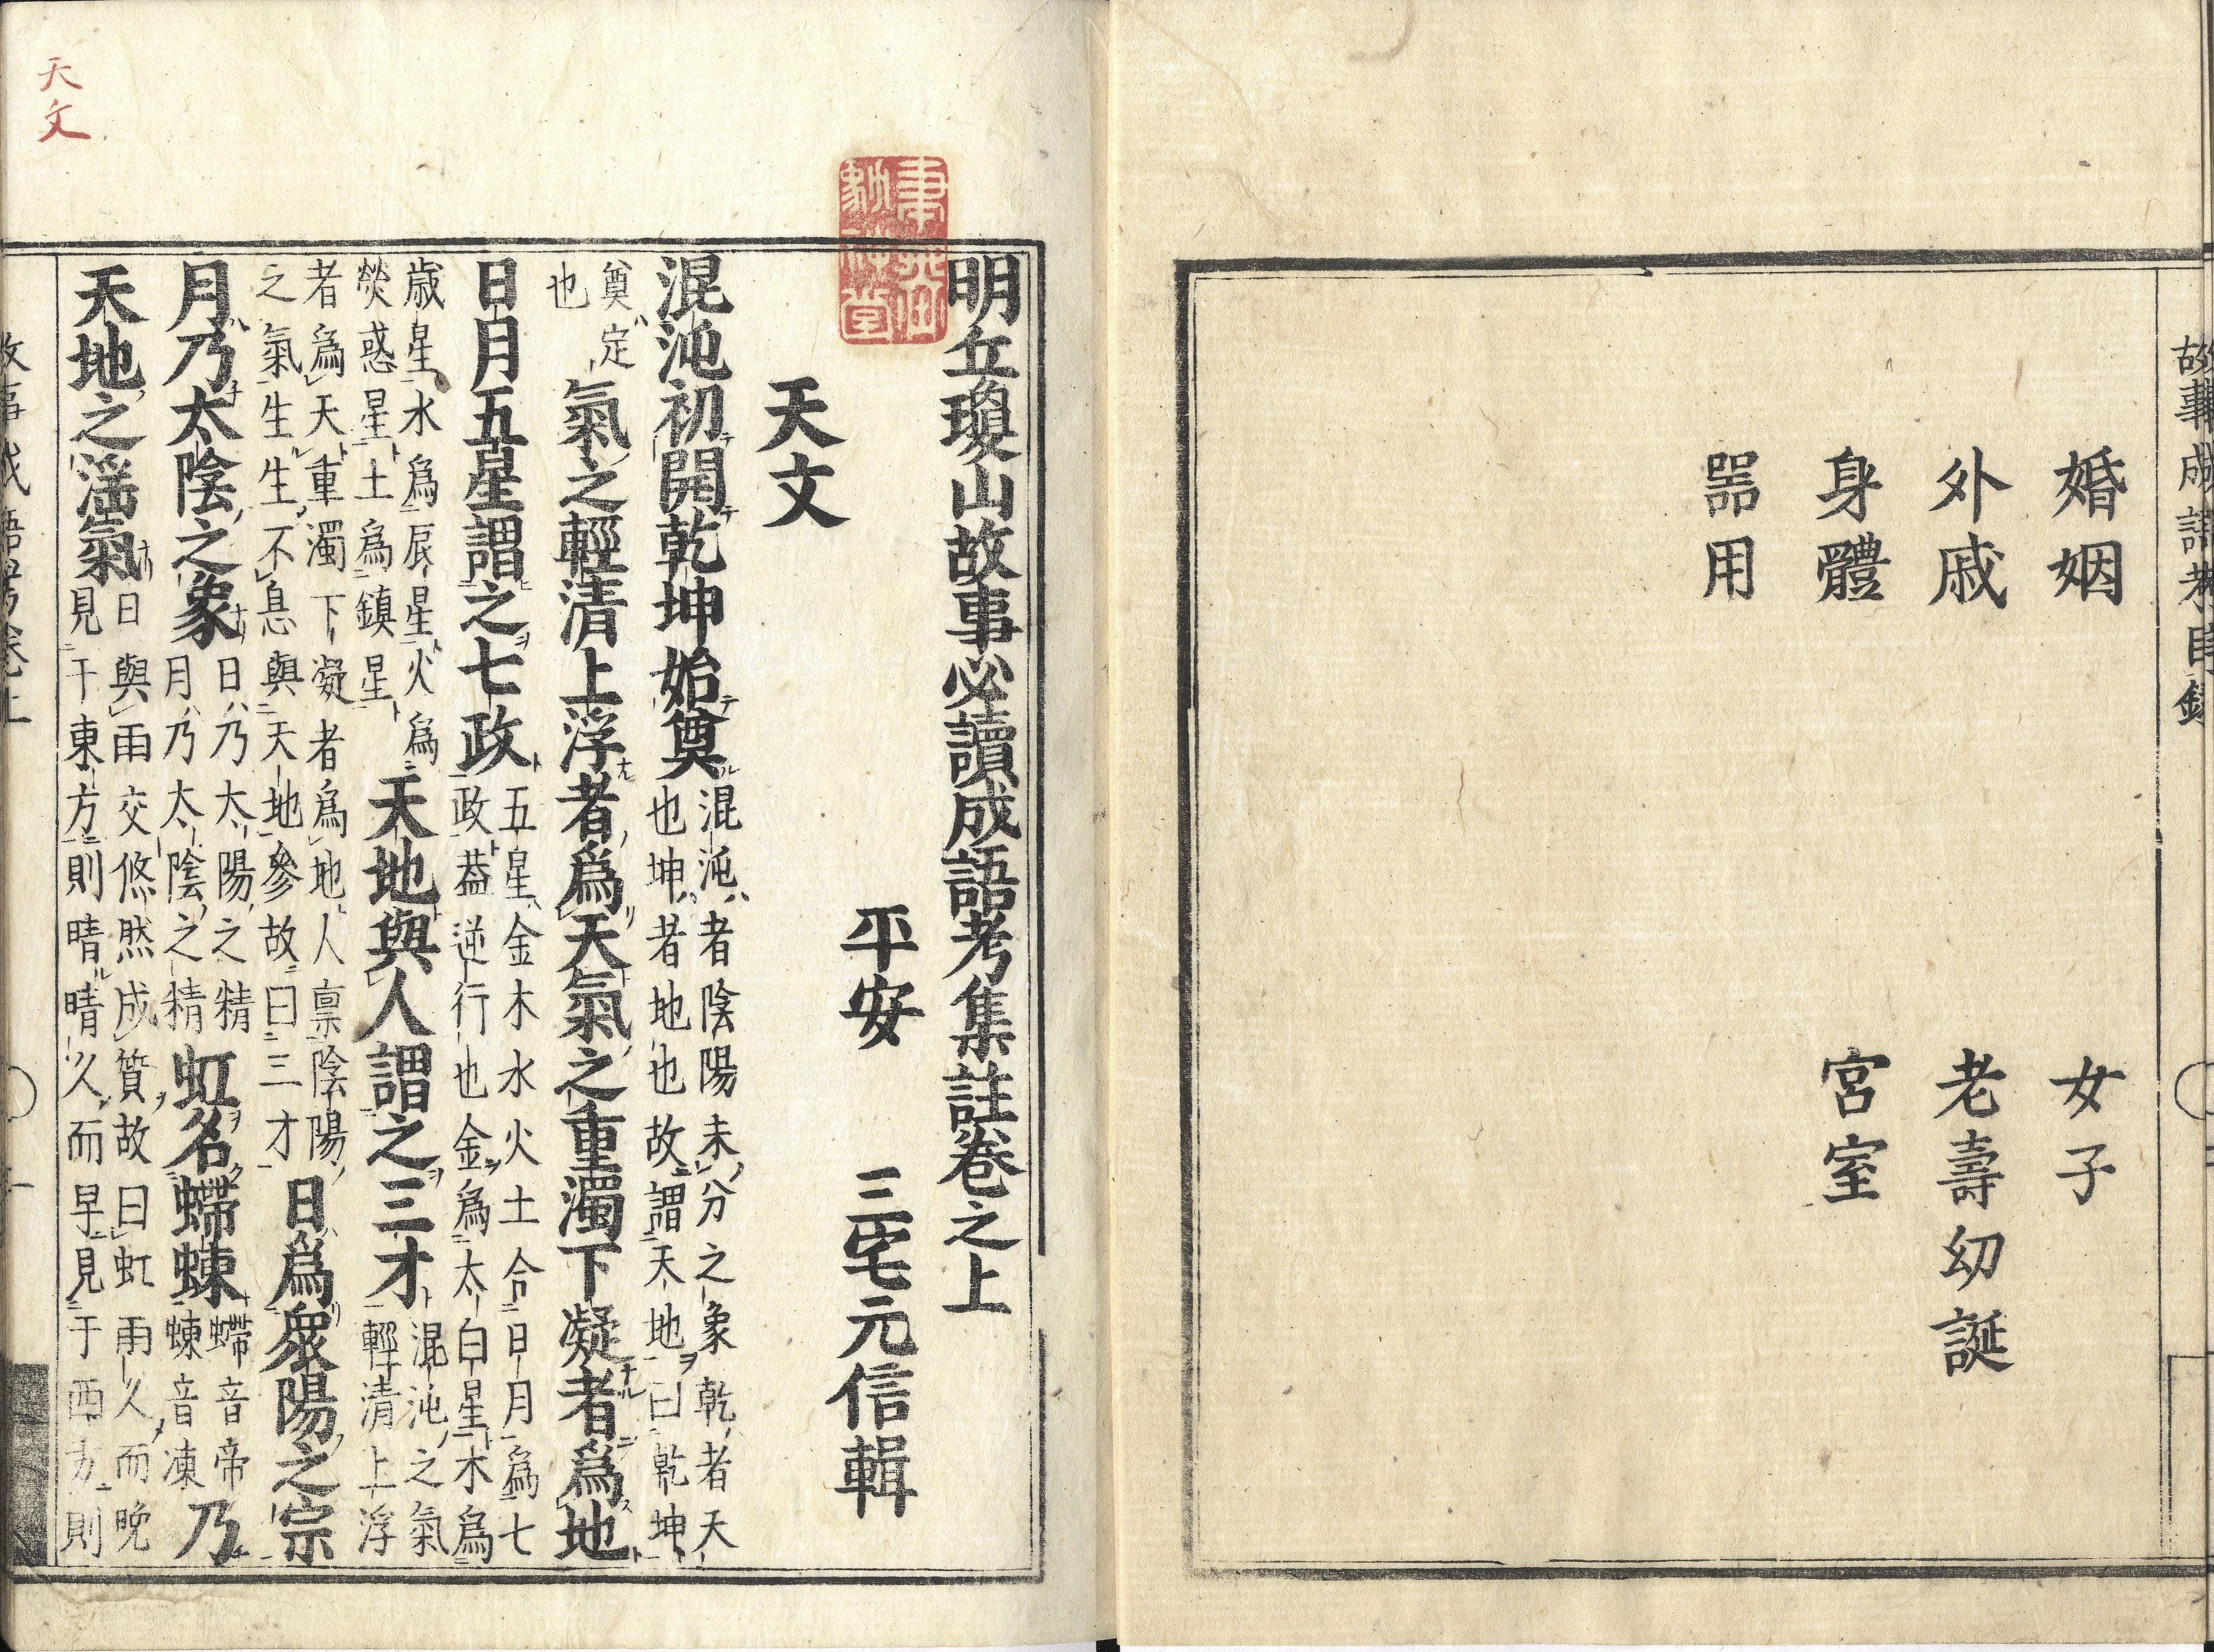 故事成語考目録
婚姻　女子
外戚　老壽幼誕
身體　宮室
噐用
明丘瓊山故事必讀成語考集註卷之上
平安　三宅元信輯
天文
混沌初開乾坤始奠混沌者陰陽未分之象乾者天也坤者地也故謂天地曰乾坤
奠定也氣之輕清上浮者爲天氣之重濁下凝者爲地
日月五星謂之七政五星金木水火土合日月爲七政葢逆行也金爲太白星木爲
歳星水爲辰星火爲熒惑星土爲鎮星天地與人謂之三才混沌之氣輕清上浮
者爲天重濁下凝者爲地人禀陰陽之氣生生不息與天地參故曰三才日爲衆陽之宗
月乃太陰之象日乃太陽之精月乃太陰之精虹名螮蝀螮音帝蝀音凍乃
天地之滛氣日與雨交悠然成質故曰虹雨久而晩見干東方則晴晴久而早見于西方則
天文
故事成語考卷上　一